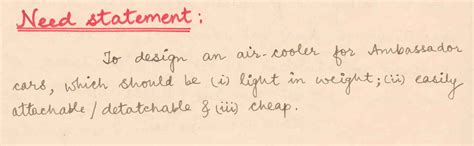 Need statement:
To design an air-cooler for Ambassador
cars, which should be (i) light in weight; (ii) easily
attachable / detatchable & (iii) cheap.